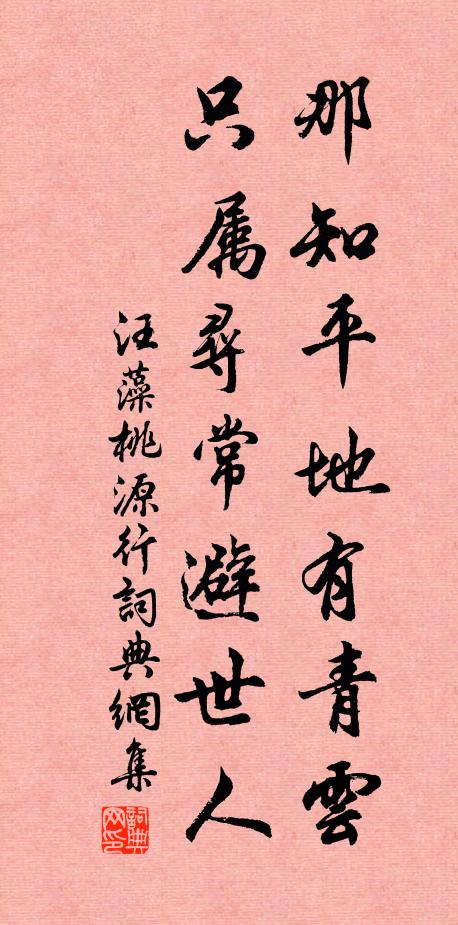 那知平地有青雲
只属尋常避世人
汪藻桃源行詞典網集
詞典网印